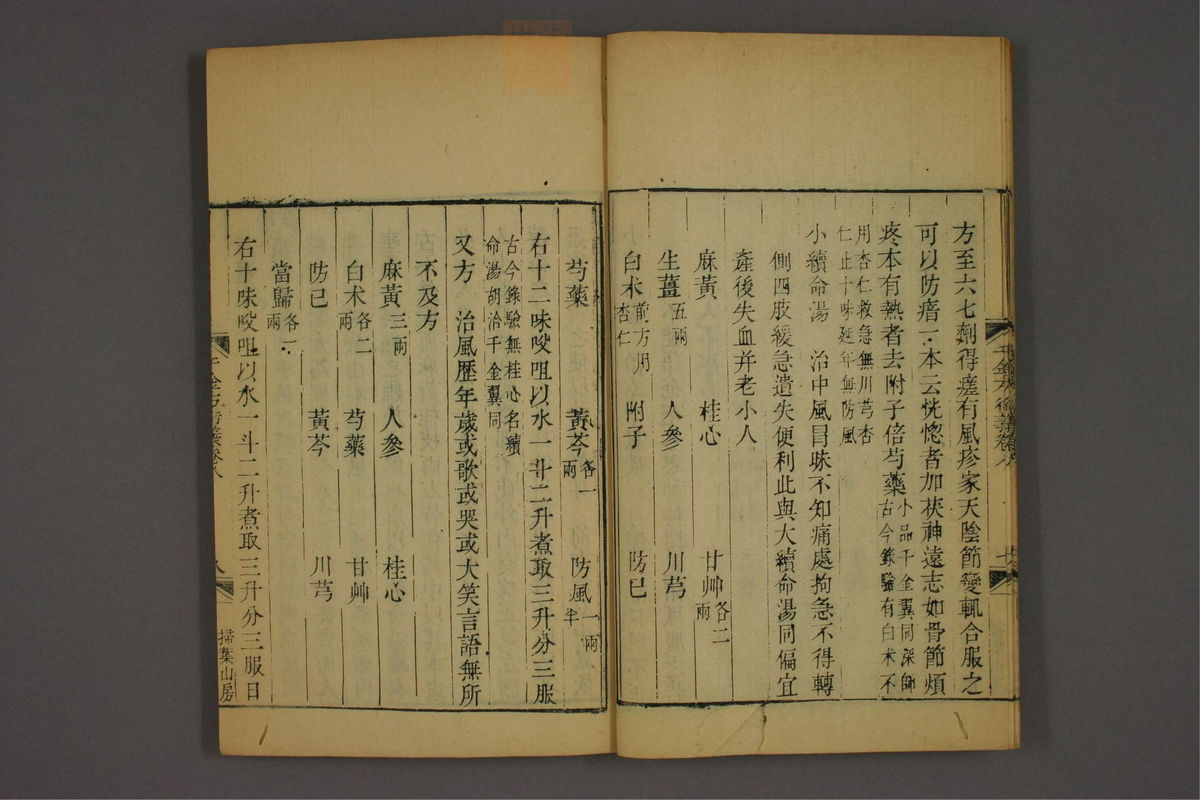 方至六七劑得瘥有風疹家天陰節變輒合服之
可以防瘖一本云恍惚者加茯神遠志如骨節煩
疼本有熱者去附子倍芍藥小品千金翼同深師
古今錄驗有白术不
用杏仁救急無川芎杏
仁止十味延年無防風
小續命湯　治中風冒昧不知痛處拘急不得轉
側四肢緩急遺失便利此與大續命湯同偏宜
產後失血并老小人
麻黃　桂心　甘艸各二兩
生薑五兩　人參　川芎
白术　附子　防己
杏仁前方用
芍藥　黃芩各一兩　防風一兩半
右十二味㕮咀以水一斗二升煮取三升分三服
古今錄驗無桂心名續
命湯胡洽千金翼同
又方　治風歷年歲或歌或哭或大笑言語無所
不及方
麻黃三兩　人參　桂心
白术各二兩　芍藥　甘艸
防己　黃芩　川芎
當歸各一兩
右十味㕮咀以水一斗二升煮取三升分三服日
掃葉山房